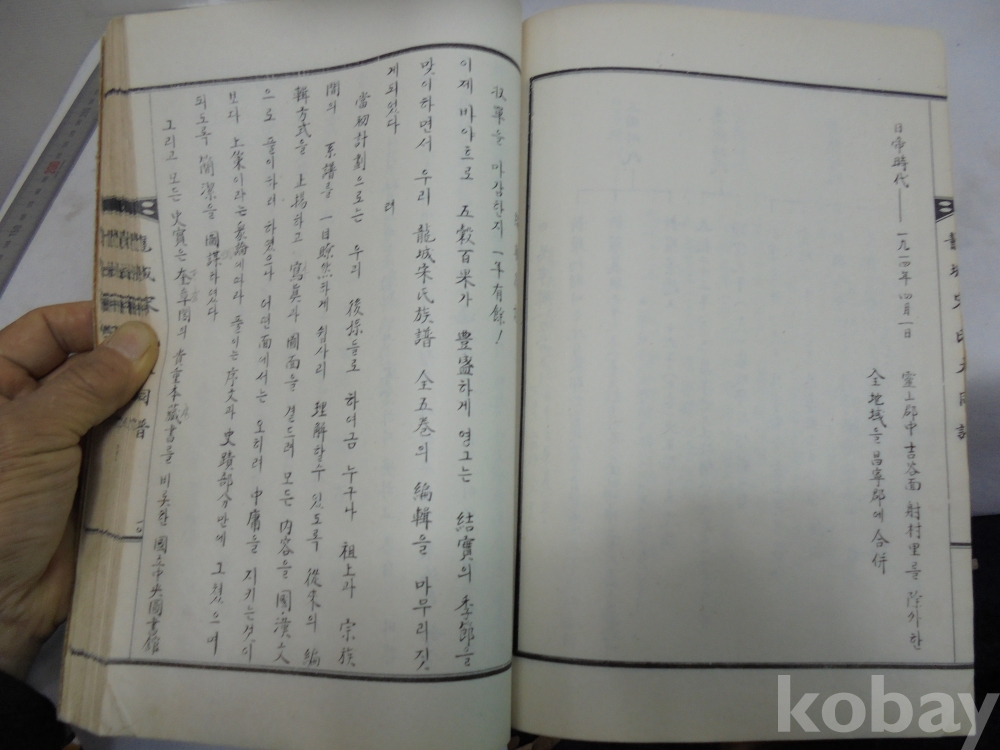 日帝時代 —— 一九一四年 四月一日
靈山郡中吉谷面 射村里를 除外한
全地域을 昌寧郡에 合倂
收單을 마감한지 一年有餘!
이제 바야흐로 五穀百米가 豊盛하게 영그는 結實의 季節을
맞이하면서 우리 龍城宋氏族譜 全五卷의 編輯을 마무리짓
게되었다
當初計劃으로는 우리 後孫들로 하여금 누구나 祖上과 宗族
間의 系譜를 一目瞭然하게 쉽사리 理解할수 있도록 從來의 編
輯方式을 止揚하고 寫眞과 圖面을 곁드려 모든 內容을 國·漢文
으로 풀이하려 하였으나 어떤面에서는 오히려 中庸을 지키는것이
보다 上策이라는 衆論에따라 풀이는 序文과 史蹟部分만에 그쳤으며
되도록 簡潔을 圖謀하였다
그리고 모든 史實은 奎章閣의 貴重本藏書를 비롯한 國立中央圖書館
kobay